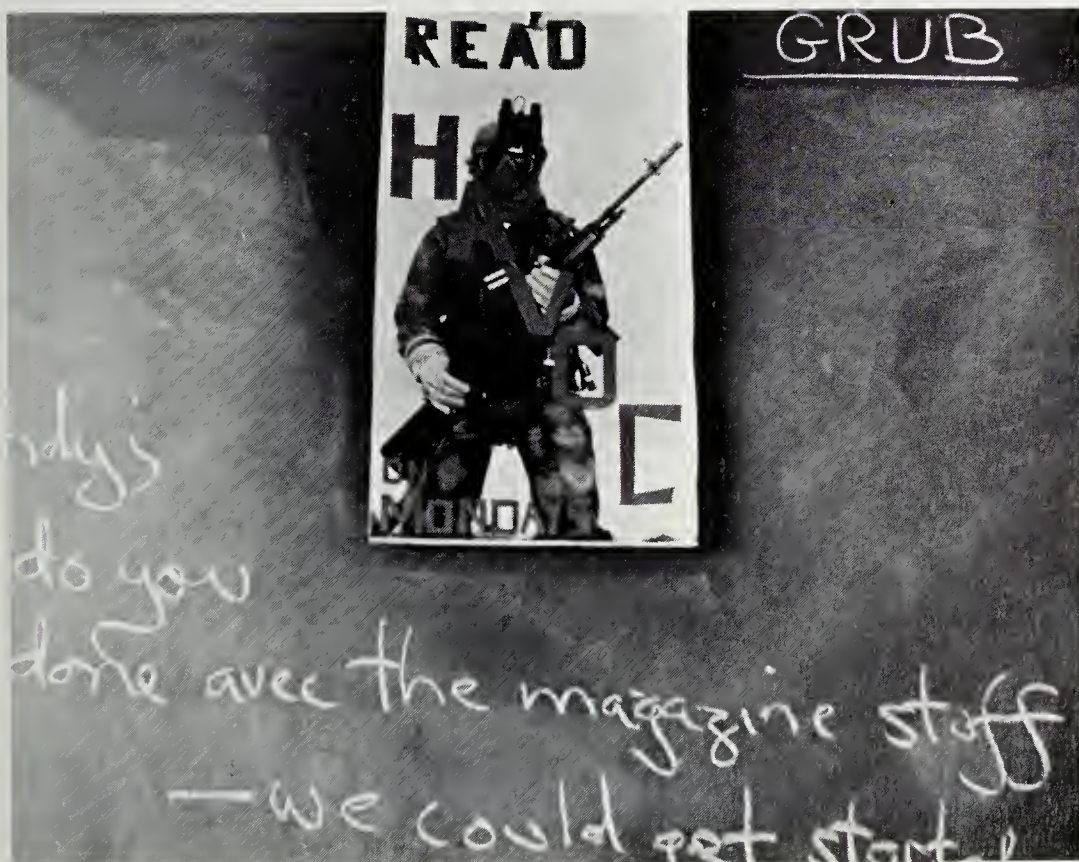 READ
GRUB
H
V
O
C
MONDAYS
do you
done avec the magazine stuff
— we could get